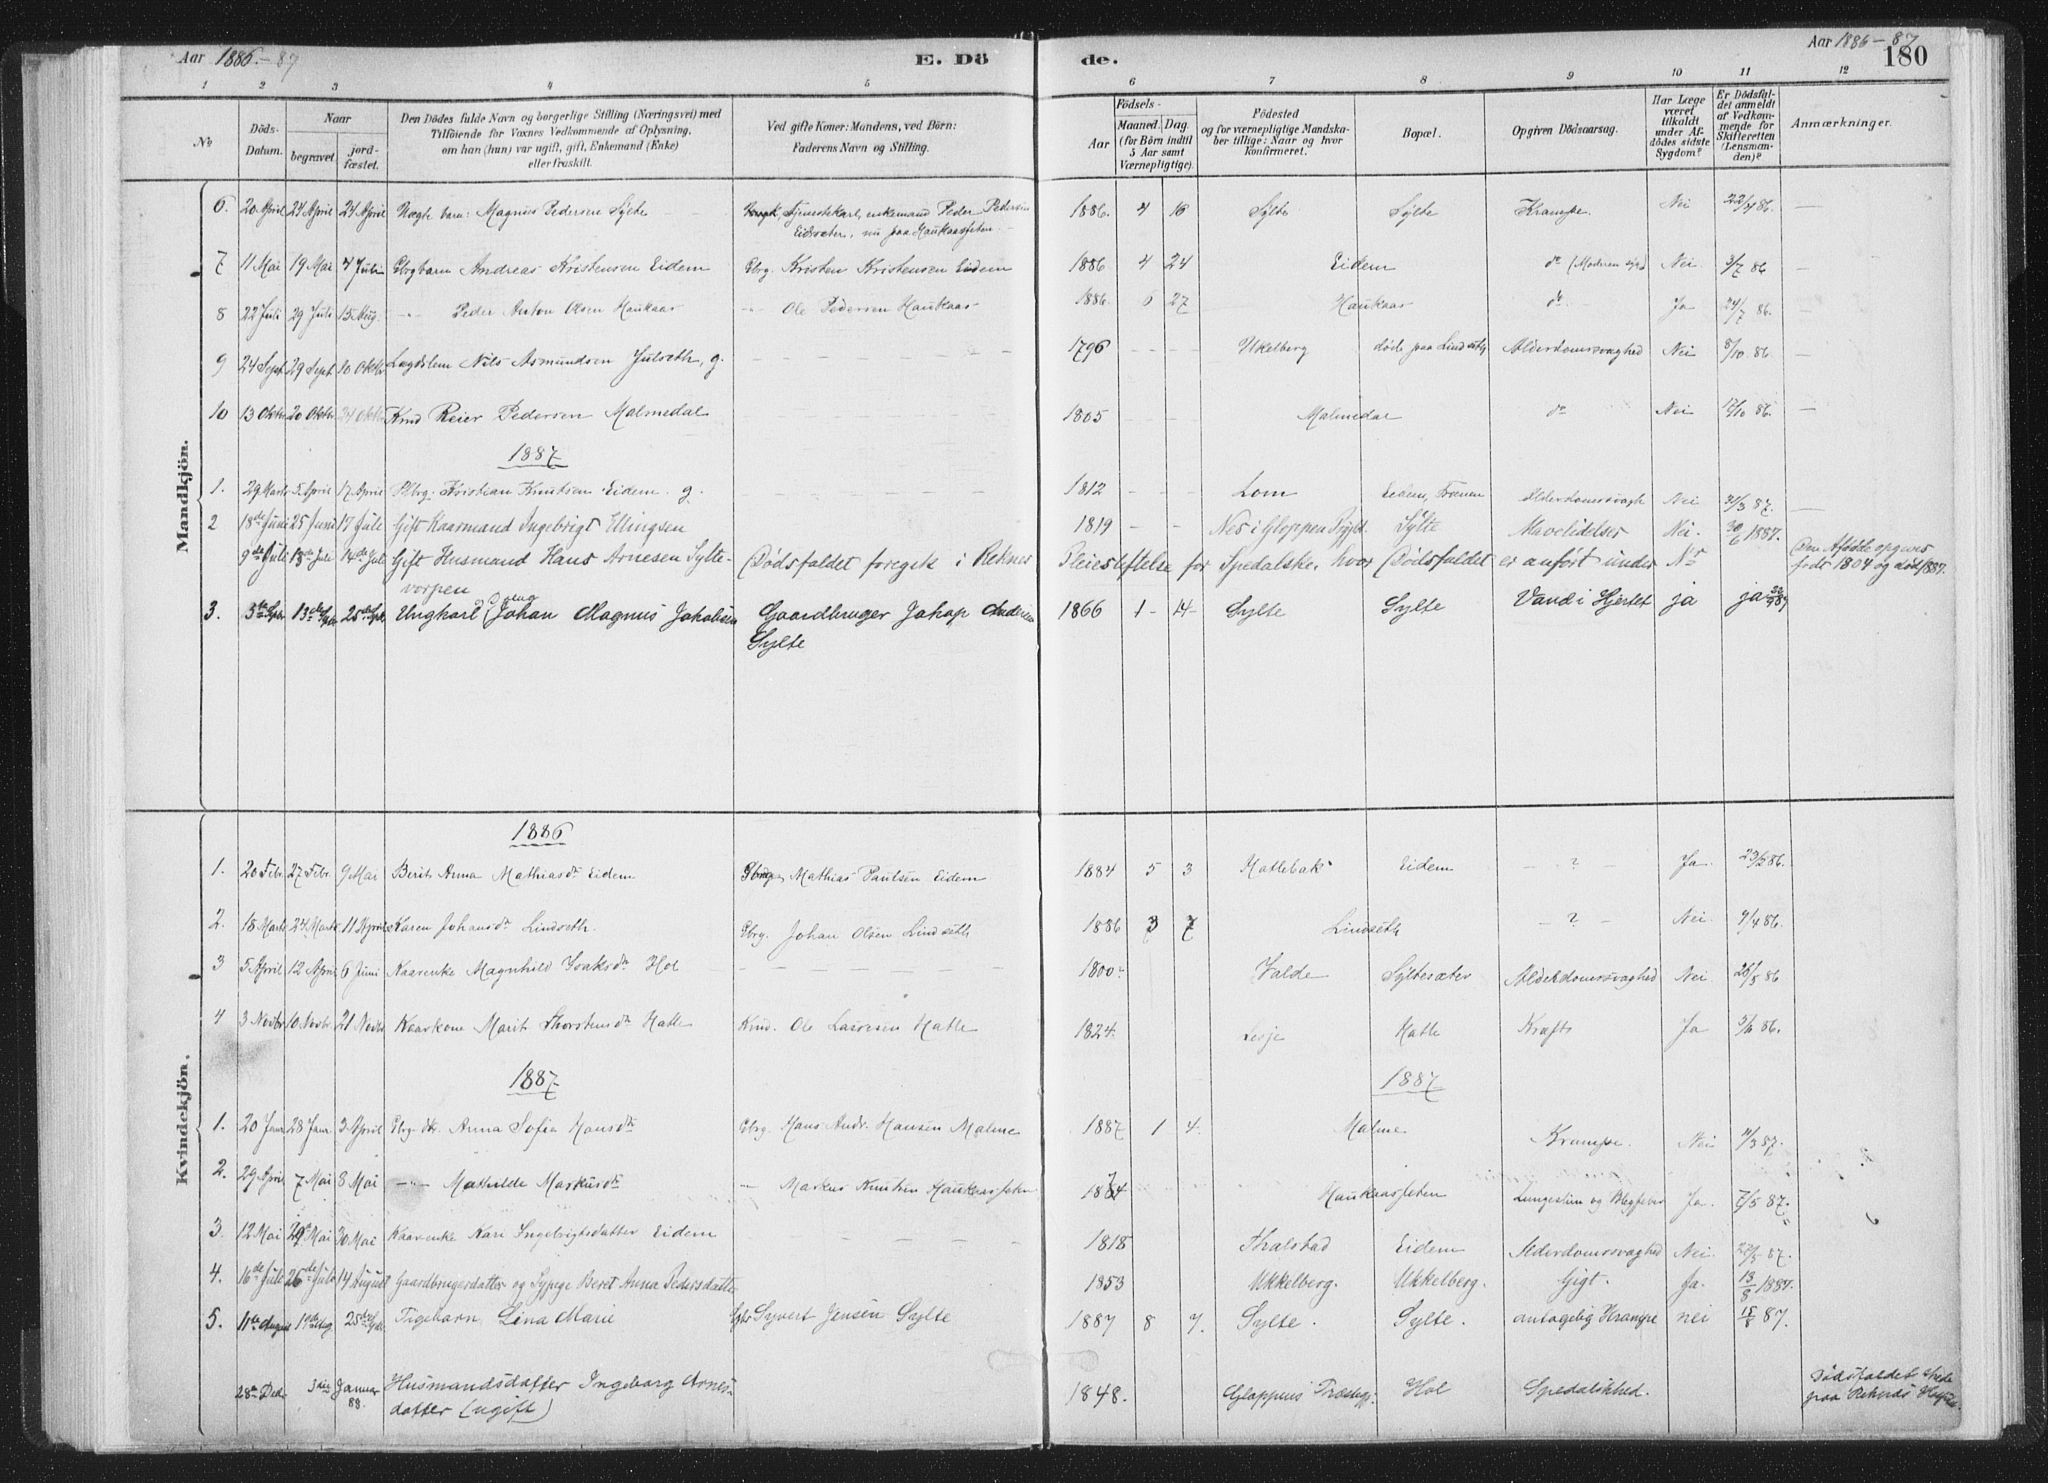 Aar 1886-87
E. Dö
de.
Aar 1886-87
180
1 2 3 4 5 6 7 8 9 10 11 12
No
Döds-Datum.
Naar
begravet. jord-fæstet.
Den Dödes fulde Navn og borgerlige Stilling (Næringsvei) med
Tilföiende for Voxnes Vedkommende af Oplysning,
om han (hun) var ugift, gift, Enkemand (Enke)
eller fraskilt.
Ved gifte Koner: Mandens, ved Börn:
Faderens Navn og Stilling.
Födsels-
Aar Maaned. Dag.
(for Börn indtil
5 Aar samt
Værnepligtige)
Födested
og for værnepligtige Mandska-
ber tillige: Naar og hvor
konfirmeret.
Bopæl.
Opgiven Dödsaarsag.
Har Læge
været
tilkaldt
under Af-
dödes sidste
Sygdom?
Er Dödsfal-
det anmeldt
af Vedkom-
mende for
Skifteretten
(Lensman-
den)?
Anmærkninger.
Mandkjön.
6. 20 April 24 April 24 April Magnus Pedersen Sylte enkemand Peder Pedersen 1886. 4 16 Sylte Sylte Krampe Nei 22/4 86.
Eidsæter, nu paa Haukaasjeten
7 11 Mai 19 Mai 4 Juli Gbrgbarn Andreas Kristensen Eidem Gbrg. Kristen Kristensen Eidem 1886 4 24 Eidem do Nei 3/7 86 —
8 22 Juli 29 Juli 15 Aug. —"— Peder Anton Olsen Haukaas —"— Ole Pedersen Haukaas 1886. 6 27 Haukaas do Ja 24/7 86. —
9 24 Sept 29 Sept 10 Oktbr Lægdslem Nils Asmundsen Julseth, g. 1796 — — Ukelberg døde paa Lindseth Alderdomssvaghed Nei 8/10 86. —
10 13 Oktbr 20 Oktbr 24 Oktbr Kmd Reier Pedersen Malmedal 1805 — — Malmedal do Nei 17/10 86. —
1887
1. 29 Marts 5 April 17 April Kristian Knutsen Eidem. g. 1812 — — Lom Eidem, Frænen Alderdomssvagh Nei 31/3 87. —
2 18de Juni 25 Juni 17 Juli Gift Kaarmand Ingebrigt Ellingsen 1819 — — Nes i Gloppen Sylte Mavelidelser Nei. 30/6 1887.
9de Juli 13de Juli 14de Juli Gift Husmand Hans Arnesen Sylte- Dødsfaldet foregik i Reknes Pleiestiftelse for Spedalske, hvor Dødsfaldet er anført under No Den Afdøde opgives
vorpen født 1804 og død 1887.
3. 3die 13de 25de Ungkarl Johan Magnus Jakobsen Gaardbruger Jakop Andersen 1866 1 14 Sylte Sylte Vand i Hjertet ja ja
Sylte
Kvindekjön.
1886
1. 20 Febr. 27 Febr. 9 Mai Berit Anna Mathiasdr Eidem Mathias Paulsen Eidem 1884 5 3 Hatlebak Eidem — ? — Ja 23/2 86.
2. 18 Marts 24 Marts 11 April Karen Johansdr Lindseth. Gbrg. Johan Olsen Lindseth 1886 3 7 Lindseth — ? — Nei 9/4 86.
3 5 April 12 April 6 Juni Kaarenke Magnhild Isaksdr Hol 1800. Valde Syltesæter Alderdomssvaghed Nei 26/5 86
4 3 Novbr 10 Novbr 21 Novbr Kaarkone Marit Thorstensdr Hatle Kmd. Ole Larsen Hatle 1824. Lesje Hatle Kræft Ja 86.
1887 1887
1. 20 Janr 28 Janr. 3 April Gbrg dtr. Anna Sofia Hansdr Gbrg. Hans Andr. Hansen Malme 1887 1 4. Malme Krampe. Nei 11/3 87.
2. 29 April 7 Mai 8 Mai —"— Mathilde Markusdr —"— Markus Knutsen Haukaasjeten Haukaasjeten Ja. 7/5 87.
3. 12 Mai 29 Mai 30 Mai Kaarenke Kari Ingebrigtsdatter Eidem 1818 Thalstad Eidem Alderdomssvaghed Nei. 87.
4. 16de Juli 26de Juli 14 August Gaardbrugersdatter og Sypige Beret Anna Pedersdatter 1853 Ukkelberg. Ukkelberg. Gigt. Ja. 13/8 1887.
5. 11te August Aug 25de Pigebarn Lina Marie Syvert Jensen Sylte 1887 8 7. Sylte. Sylte. antagelig Krampe nei 15/8 87.
28de Decbr 3die Januar Husmandsdatter Ingeborg Arnes- 1848. Gloppens Præstegj. Hol Spedalskhed. Dødsfaldet skede
88. datter (ugift) paa Reknes